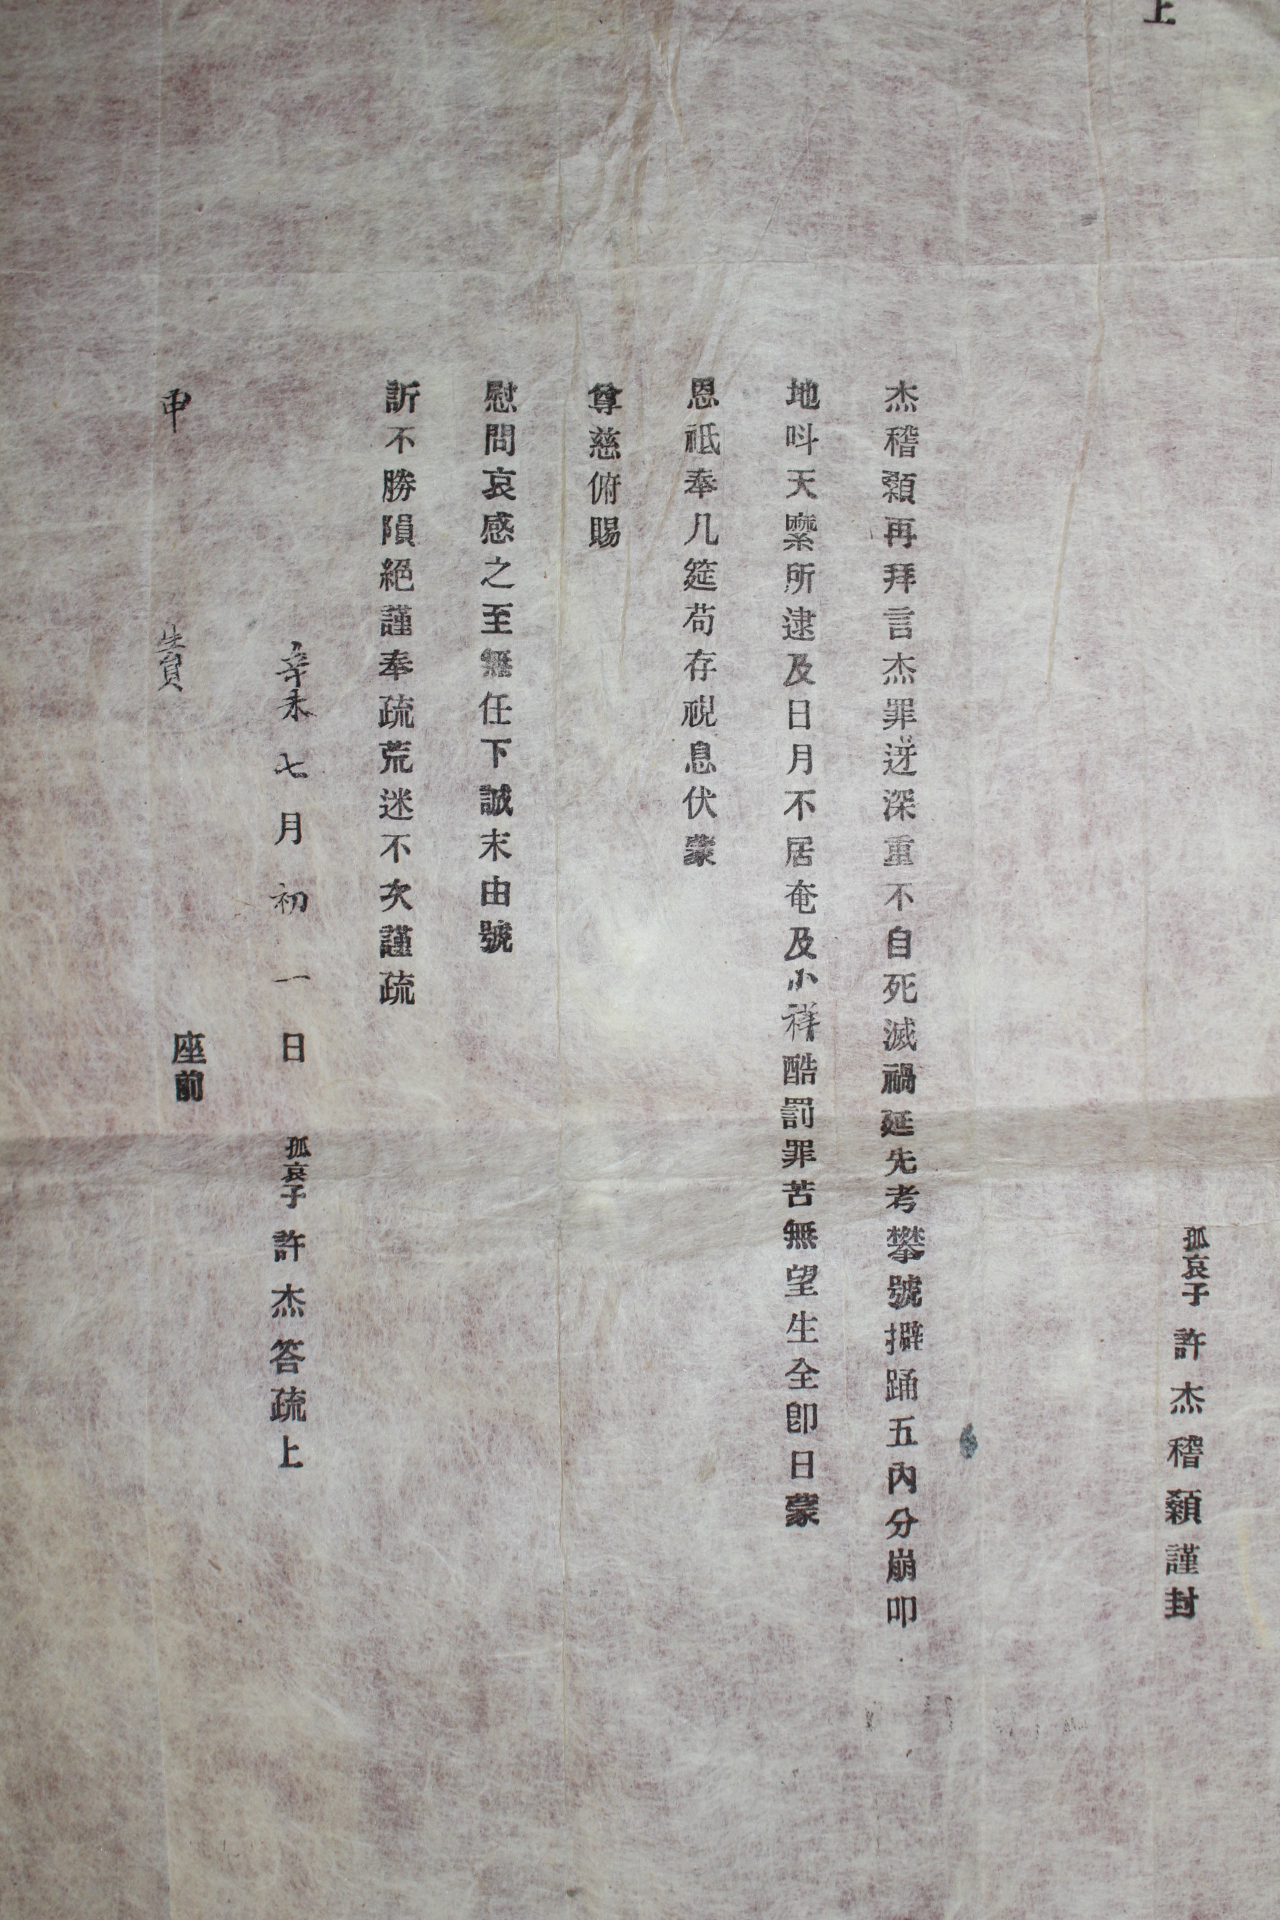 上
孤哀子 許杰稽顙謹封
杰稽顙再拜言杰罪逆深重不自死滅禍延先考攀號擗踊五內分崩叩
地叫天縻所逮及日月不居奄及小祥酷罰罪苦無望生全卽日蒙
恩祗奉几筵苟存視息伏蒙
尊慈俯賜
慰問哀感之至無任下誠末由號
訴不勝隕絕謹奉疏荒迷不次謹疏
辛未七月初一日 孤哀子 許杰答疏上
座前